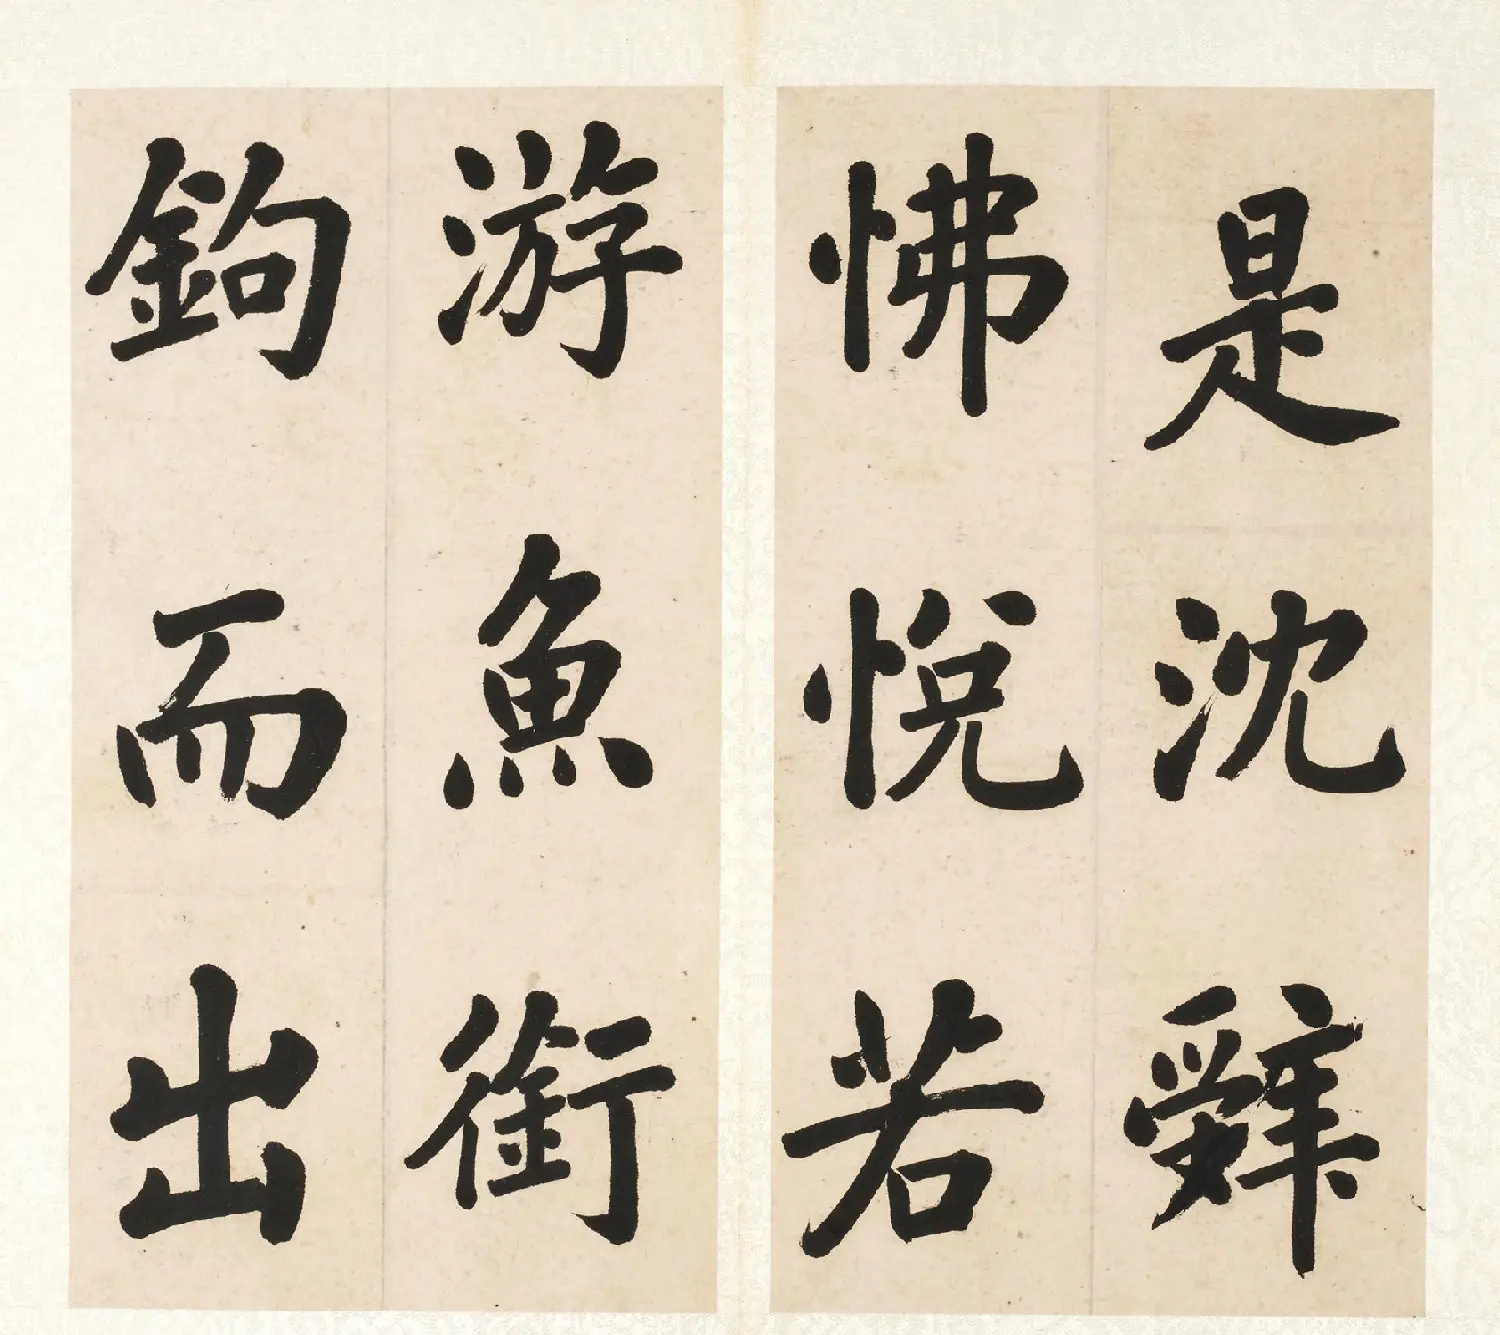 是沈辭
怫悅若
游魚銜
鉤而出